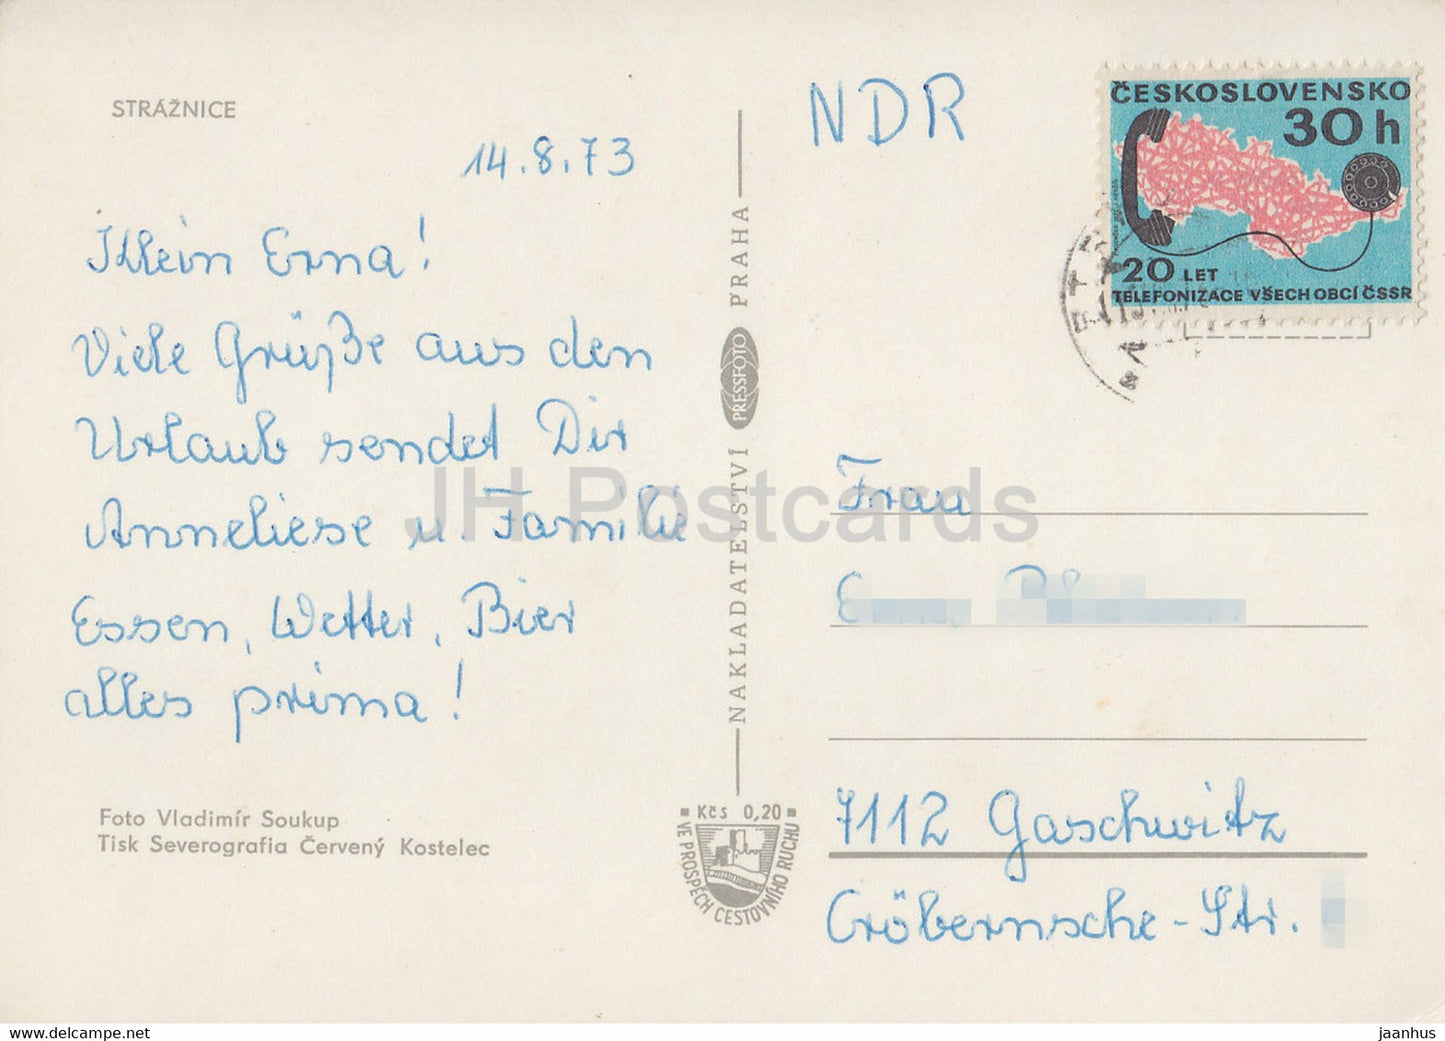 STRÁŽNICE
14.8.73
Klein Erna!
Viele Grüße aus den
Urlaub sendet Dir
Anneliese u. Familie
Essen, Wetter, Bier
alles prima!
Foto Vladimír Soukup
Tisk Severografia Červený Kostelec
NAKLADATELSTVÍ PRESSFOTO PRAHA
Kčs 0,20
VE PROSPĚCH CESTOVNÍHO RUCHU
NDR
ČESKOSLOVENSKO
30 h
20 LET
TELEFONIZACE VŠECH OBCÍ ČSSR
Frau
7112 Gaschwitz
Cröbernsche-Str.
JH Postcards
www.delcampe.net
jaanhus